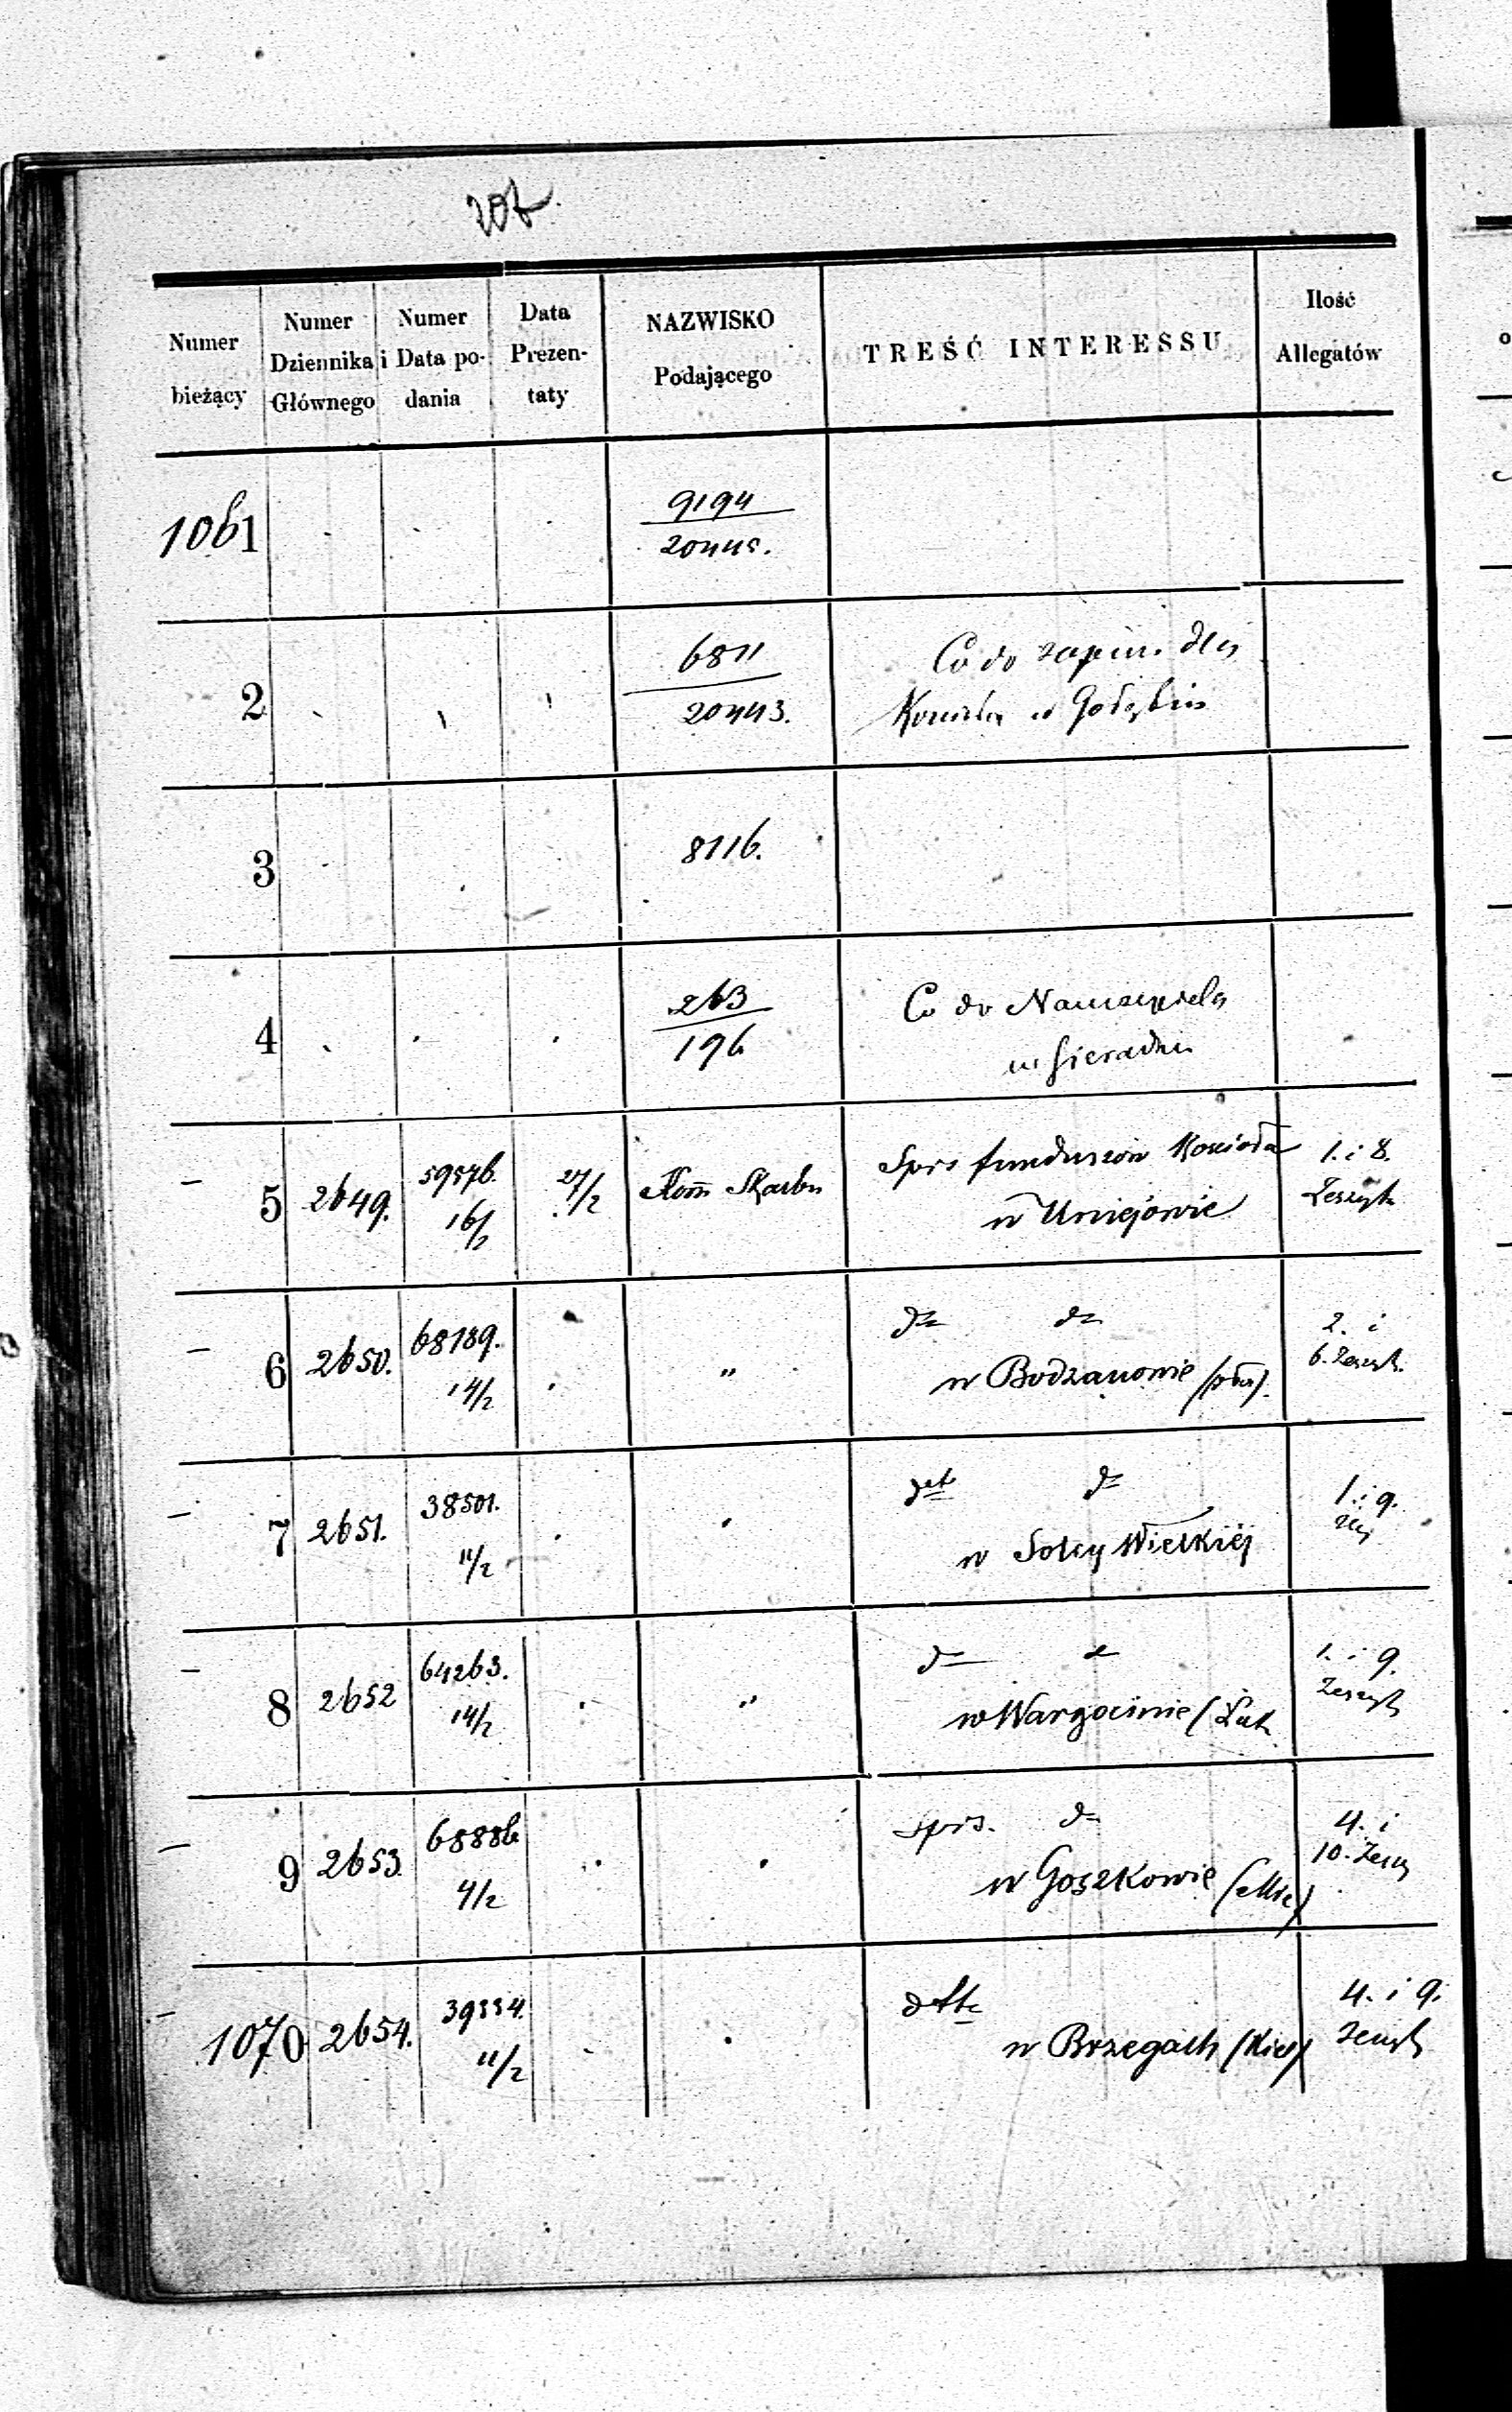 207.
Numer bieżący
Numer Dziennika Głównego
Numer i Data podania
Data Prezentaty
NAZWISKO Podającego
TREŚĆ INTERESSU
Ilość Allegatów
1061
9194
20445.
2
6811
20443.
Co do zapisu dla
Kościoła w Gołębiu
3
8116.
4
263
196
Co do Nauczyciela
w Sieradzu
5 2649. 59576. 16/2 27/2 Kom̄ Skarbu
Spis funduszów Kościoła
w Uniejowie
1. i 8.
Zeszyt.
6 2650. 68189. 14/2 "
dto dto
w Bodzanowie
2. i
6. Zeszyt.
7 2651. 38501. 11/2
dto dto
w Solcy Wielkiéj
1. i 9.
8 2652 64263. 14/2 "
dto
1. i 9.
Zeszyt
9 2653. 68886 4/2
Spis. dto
w Goszkowie
4. i
10. Zeszy
1070 2654. 39334. 11/2
dtto
w Brzegach (Kiel)
4. i 9.
Zeszyt